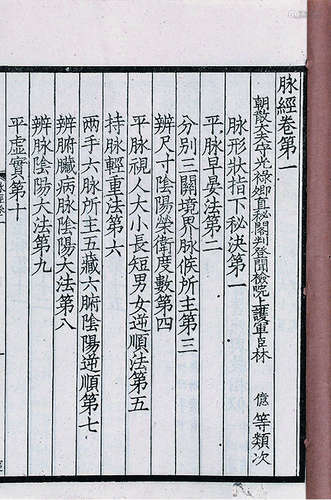 脉經卷第一
朝散大夫守光祿卿直秘閣判登聞檢院上護軍臣林 億 等類次
脉形狀指下秘決第一
平脉早晏法第二
分別三關境界脉候所主第三
辨尺寸陰陽榮衛度數第四
平脉視人大小長短男女逆順法第五
持脉輕重法第六
兩手六脉所主五藏六腑陰陽逆順第七
辨腑臟病脉陰陽大法第八
辨脉陰陽大法第九
平虛實第十